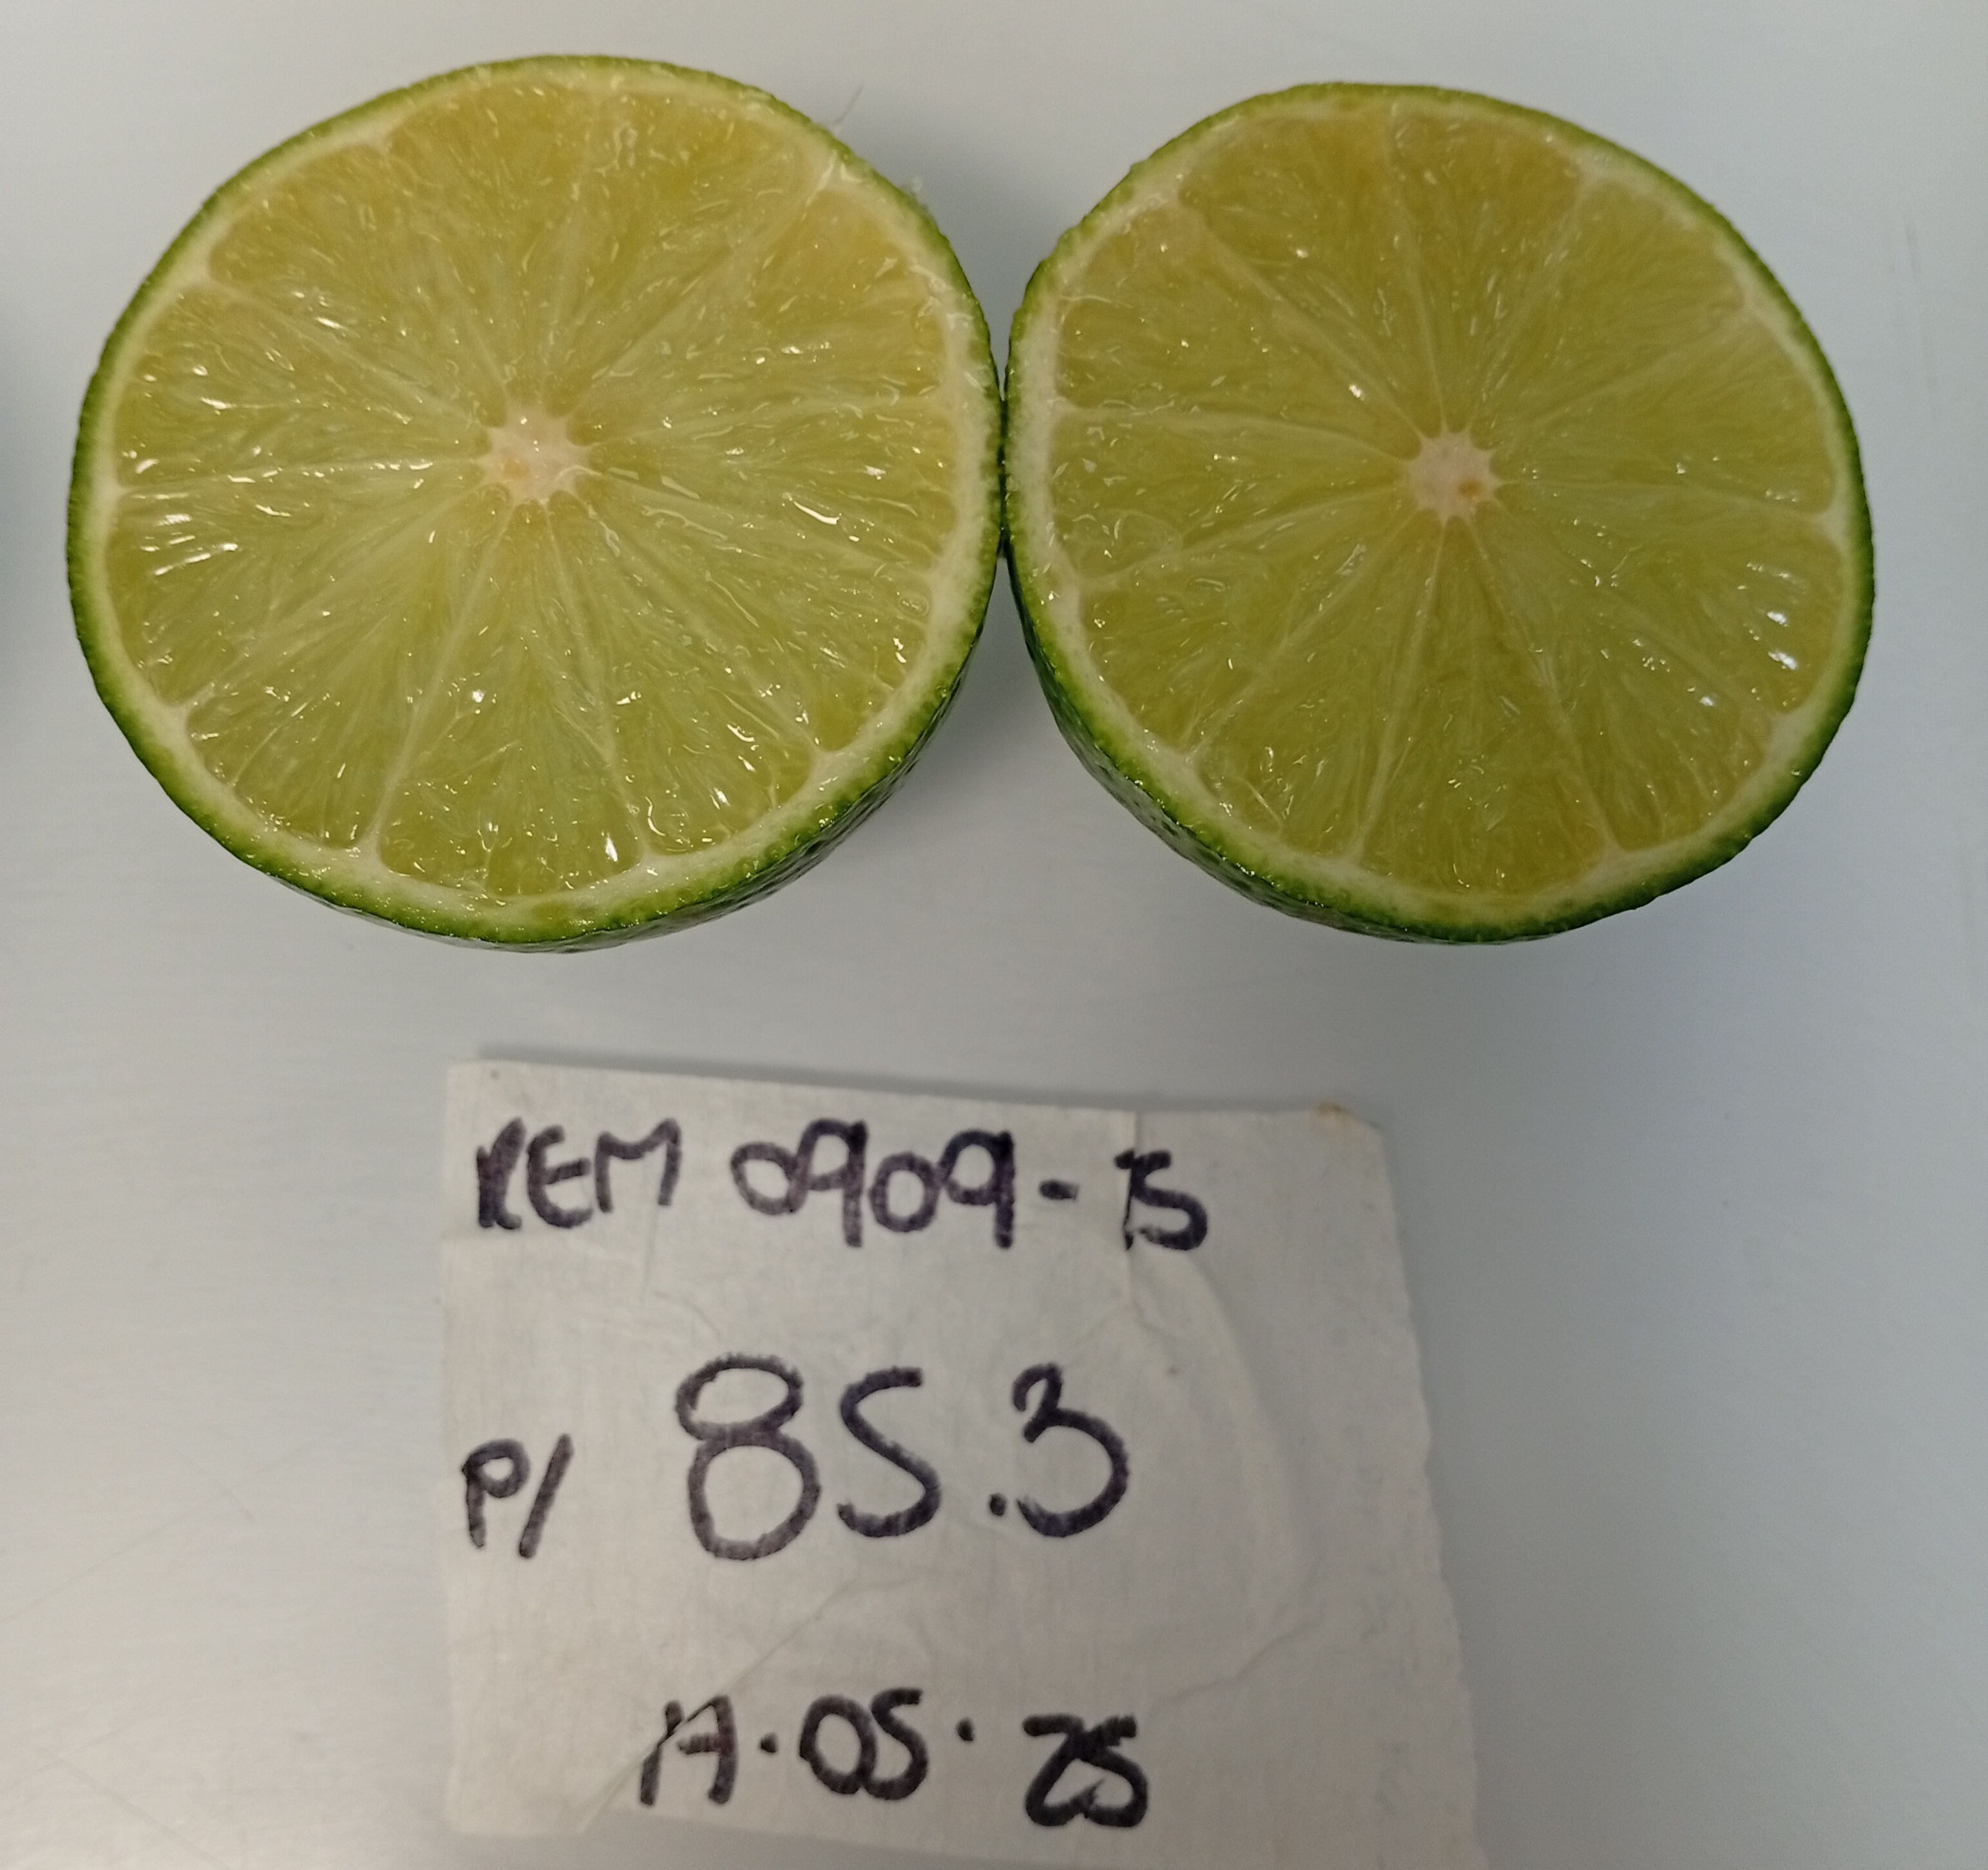 REM 0909-15
P/ 85.3
17.05.25